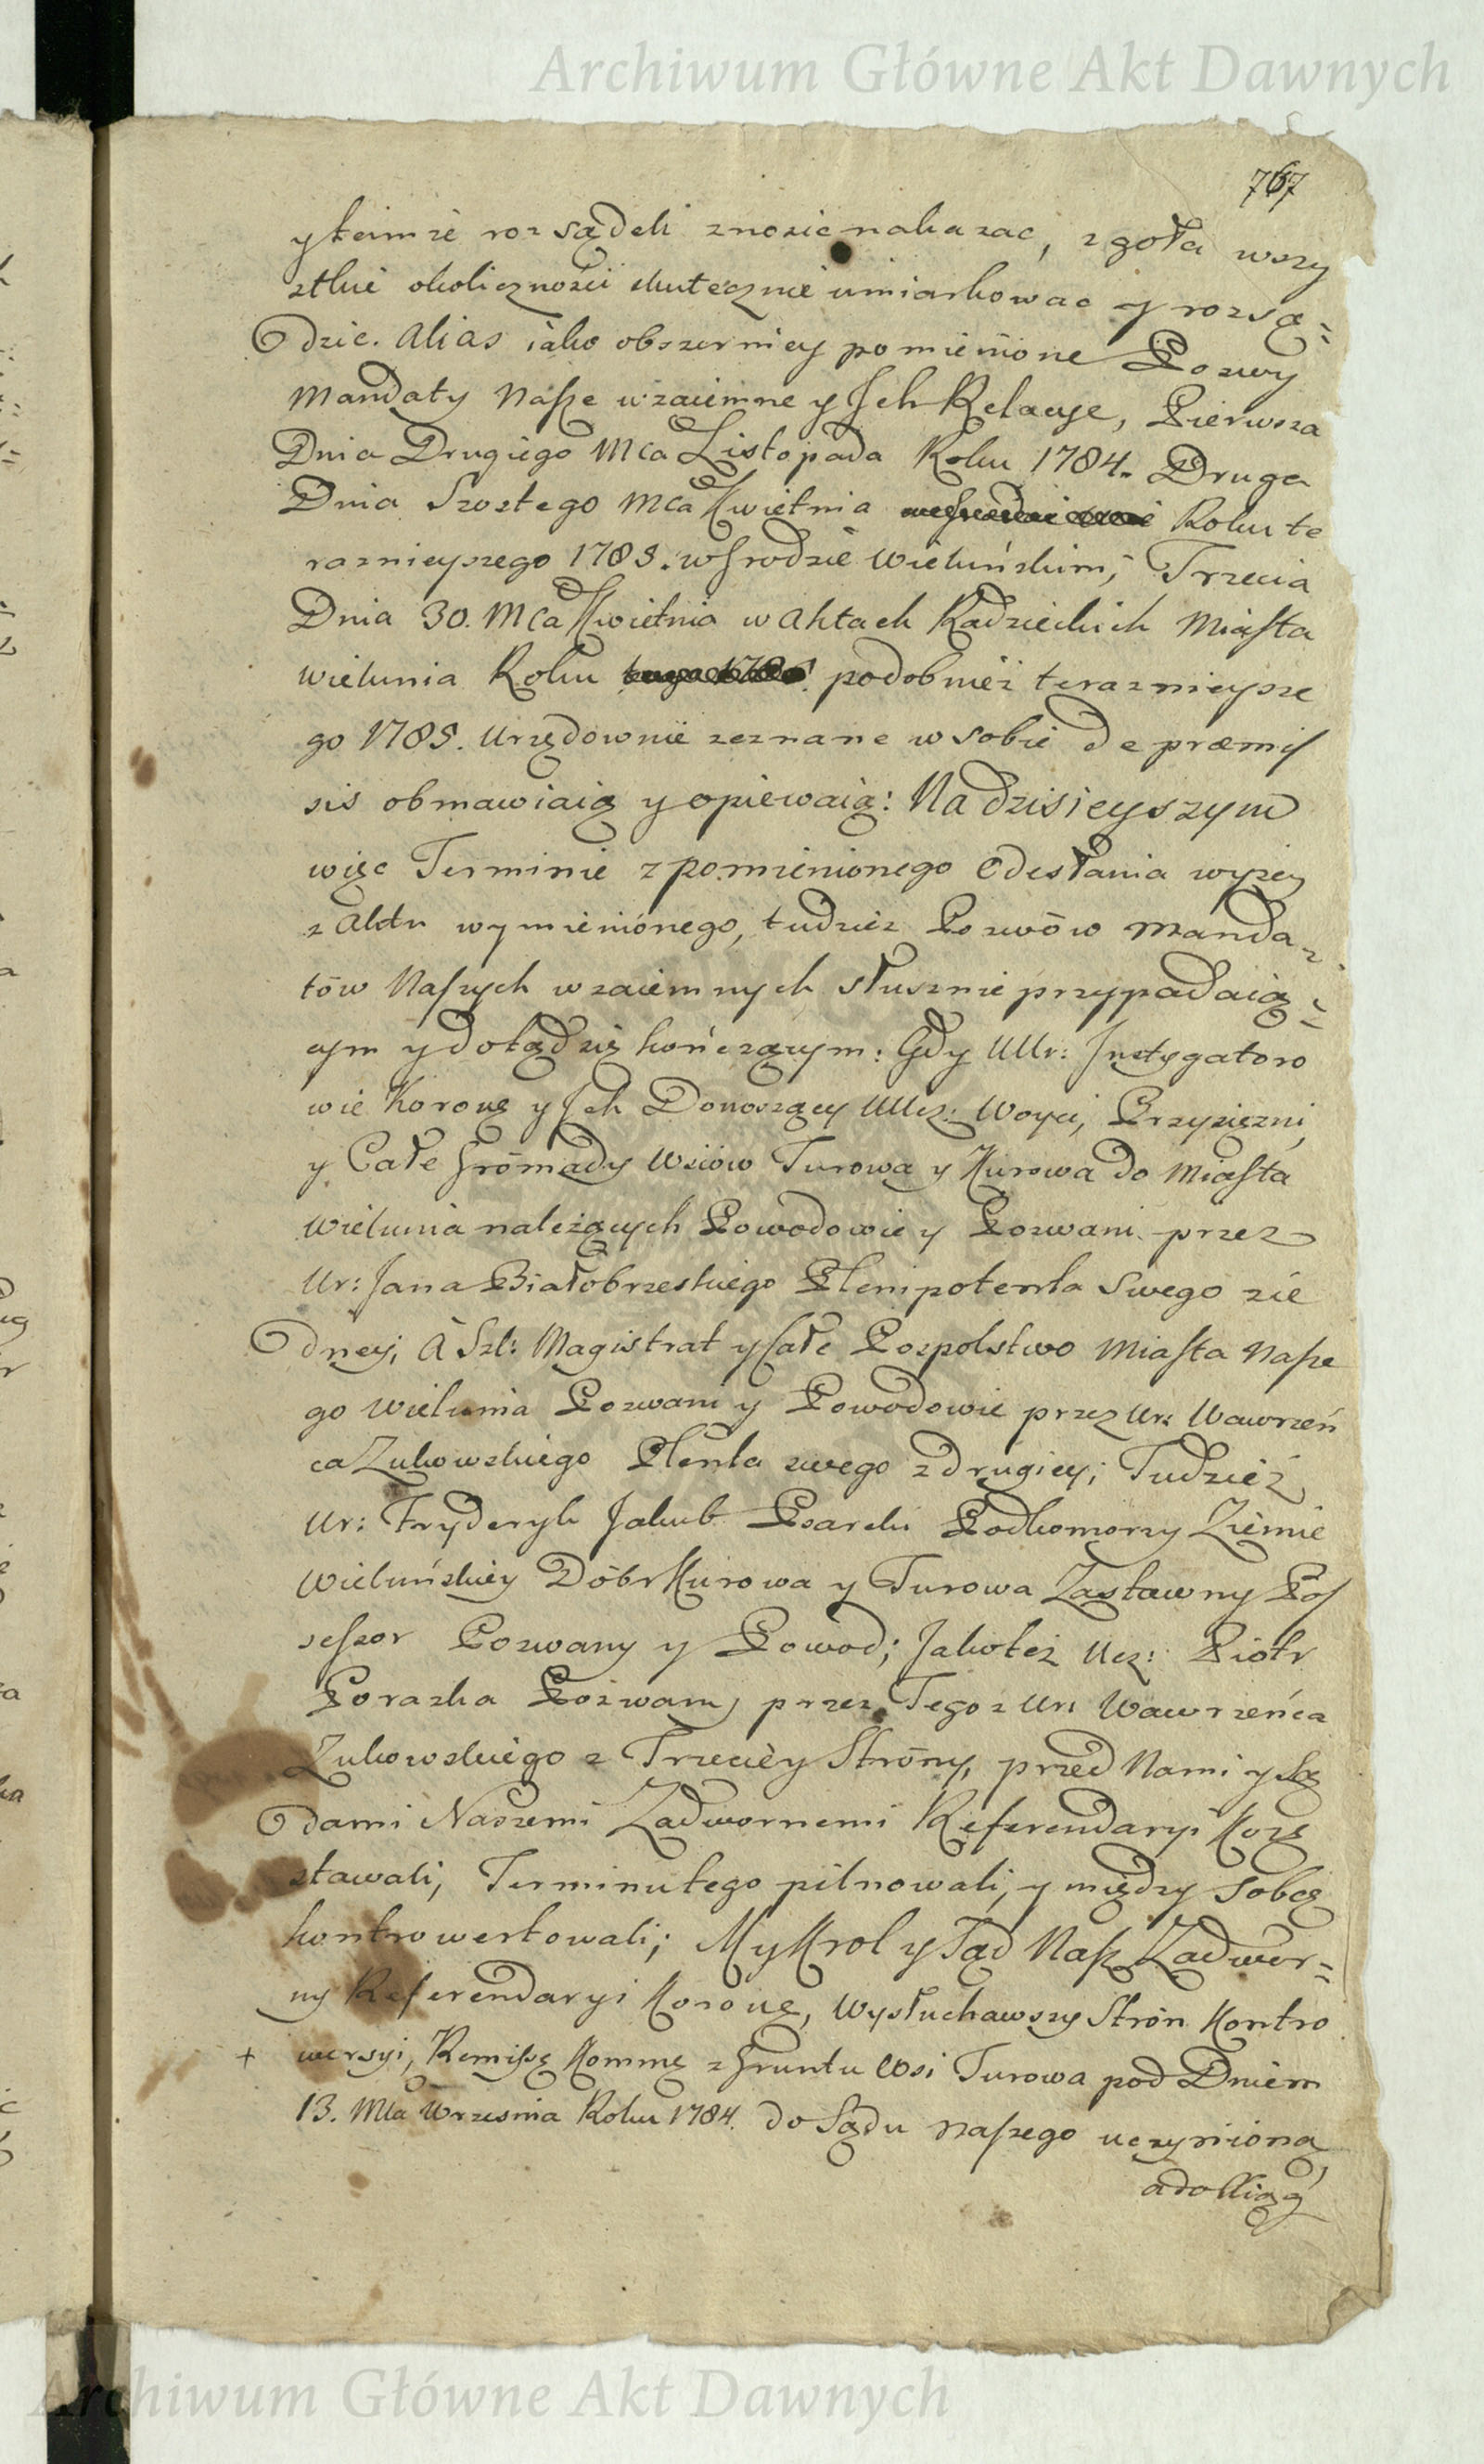 Archiwum Główne Akt Dawnych
767
yteimże rozsądeli znosić nakazać, zgoła wszy
stkie okoliczności skutecznie umiarkować y rozsą=
dzić. Alias iako obszerniey pomienione Pozwy
Mandaty Nasze wzaiemne y Jch Relacye, Pierwsza
Dnia Drugiego Mca Listopada Roku 1784. Druga
Dnia Szostego Mca Kwietnia Roku te
raznieyszego 1785. w Grodzie Wieluńskim, Trzecia
Dnia 30. Mca Kwietnia w Aktach Radzieckich Miasta
Wielunia Roku podobnież teraznieysze
go 1785. Urzędownie zeznane w sobie de præmis
sis obmawiaią y opiewaią: Na dzisieyszym
więc Terminie z pomienionego Odesłania wyżey
z Aktu wymienionego, tudzież Pozwów Manda=
tów Naszych wzaiemnych słusznie przypadaią=
cym y dotąd się kończącym: Gdy UUr: Jnstygatoro
wie Koronę y Jch Donoszący UUcz: Woyci, Przysiężni,
y Całe Gromady Wsiów Turowa y Kurowa do Miasta
Wielunia należących Powodowie y Pozwani przez
Ur: Jana Białobrzeskiego Plenipotenta Swego zie
dney, A Szl: Magistrat y Całe Pospolstwo Miasta Nasze
go Wielunia Pozwani y Powodowie przez Ur: Wawrzeń
ca Zukowskiego Plenta swego z drugiey; Tudzież
Ur: Fryderyk Jakub Psarski Podkomorzy Ziemie
Wieluńskiey Dóbr Kurowa y Turowa Zastawny Pos
sessor Pozwany y Powod; Jakoteż Ucz: Piotr
Porazka Pozwany przez Tegoz Ur: Wawrzeńca
Zukowskiego z Trzeciey Strony, przed Nami y Są
dami Naszemi Zadwornemi Referendaryi Korę
stawali, Terminu tego pilnowali, y między Sobą
kontrowertowali; My Krol y Sąd Nasz Zadwor=
ny Referendaryi Koronę, Wysłuchawszy Strón Kontro
+ wersyi, Remissę Kommę z Gruntu Wsi Turowa pod Dniem
13. Mca Września Roku 1784. do Sądu Naszego uczynioną
Archiwum Główne Akt Dawnych